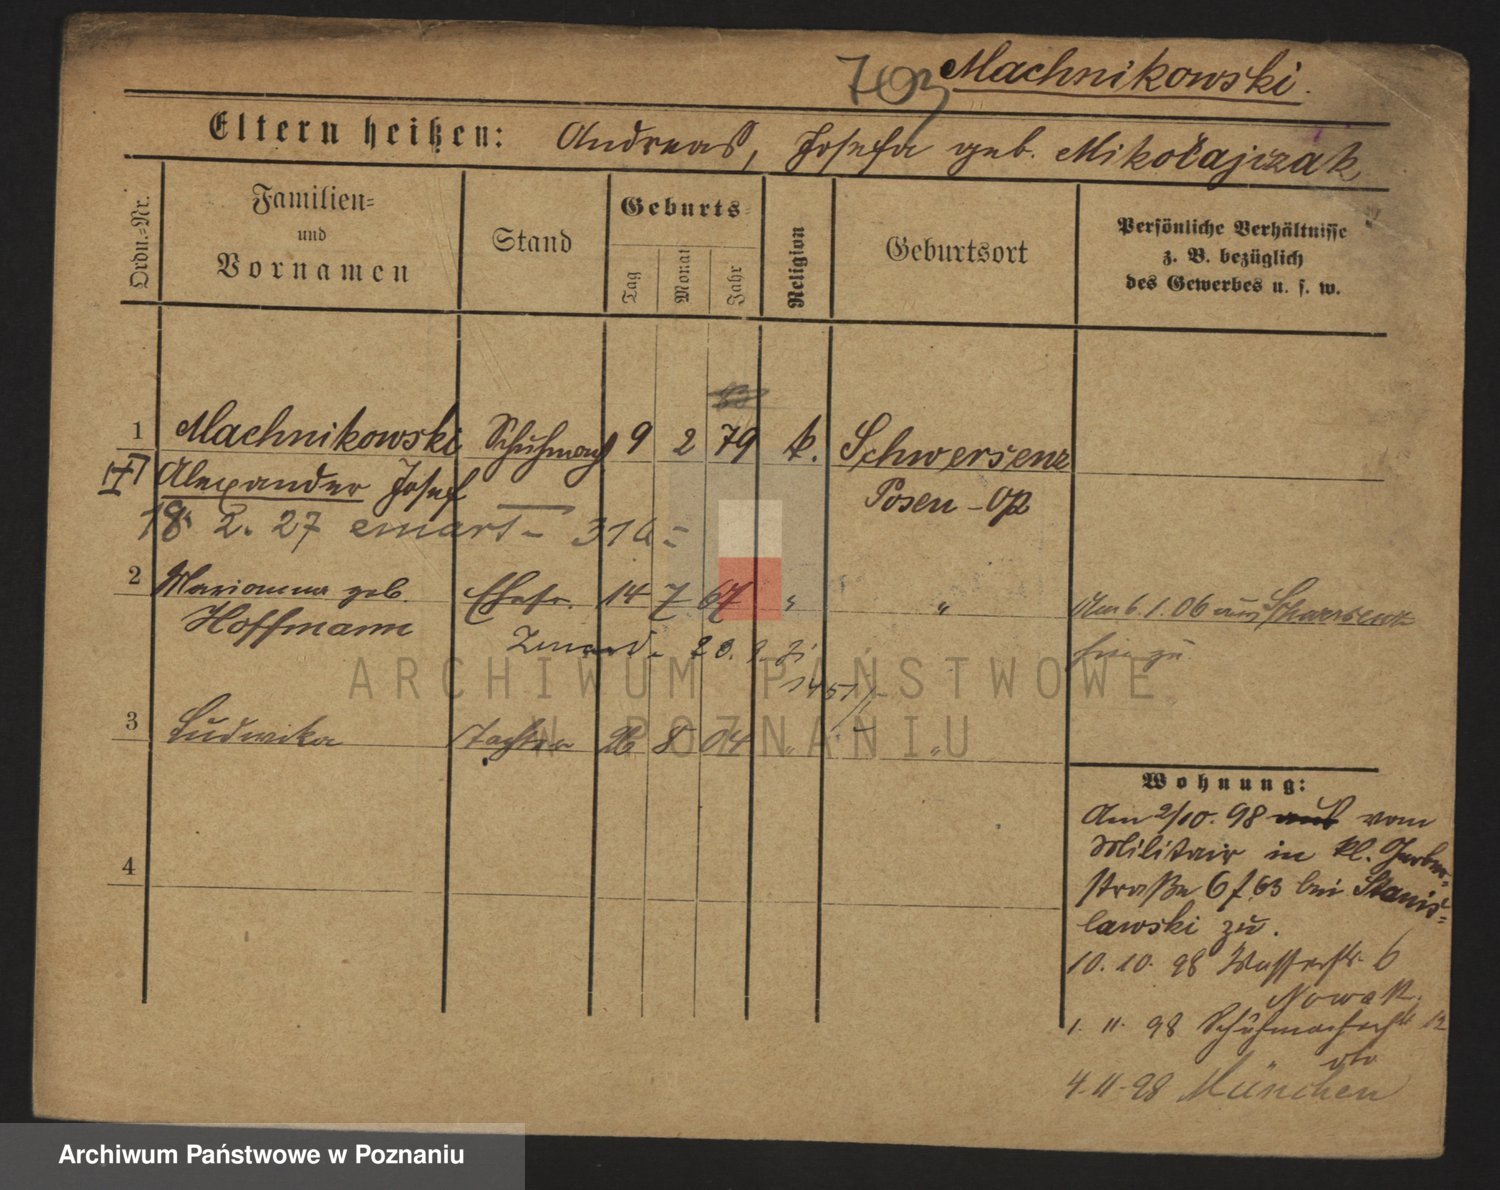 Machnikowski.
Eltern heißen: Andreas, Josefa geb. Mikołajczak
Ordn.=Nr.
Familien=
und
Vornamen
Stand
Geburts=
Tag
Monat
Jahr
Religion
Geburtsort
Persönliche Verhältnisse
z. B. bezüglich
des Gewerbes u. s. w.
1 Machnikowski Schuhmach 9 2 79 k. Schwersenz
Alexander Josef Posen-Op
18. 2. 27 emart - 31a =
2 Marianna geb. Ehefr. 14 7 67 " " Am 6. 1. 06 aus Schwersenz
Hoffmann
ARCHIWUM PAŃSTWOWE
W POZNANIU
3 Ludwika Tochter 26 8 04 " "
4
Wohnung:
Am 2/10. 98 aus vom
Militair in kl. Gerber-
straße 6 bei Stanis=
lawski zu.
10. 10. 98 Wasserstr. 6
Nowak.
1. 11. 98 Schuhmacherstr 12
4. 11. 98 München
Archiwum Państwowe w Poznaniu